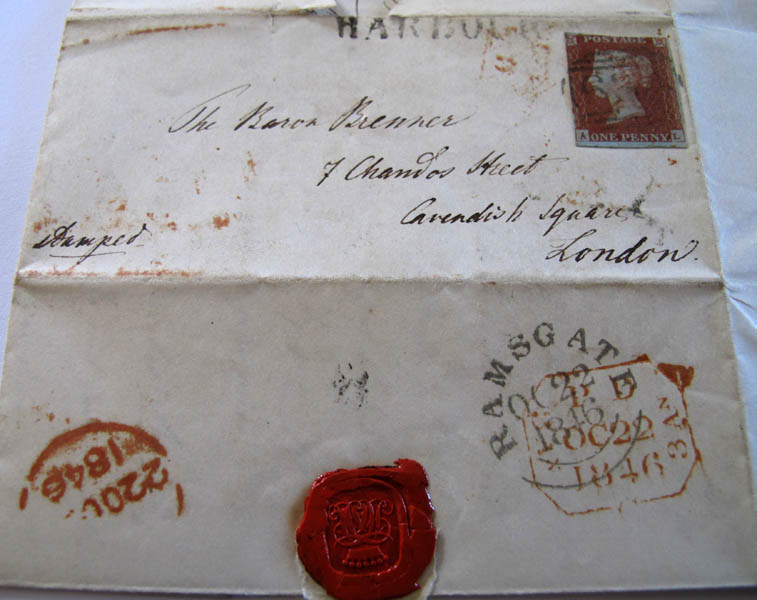 HARBOUR
POSTAGE
A ONE PENNY. L
The Baron Brenner
7 Chandos Street
Cavendish Square
London.
stamped
RAMSGATE
OC 22
1846
OC 22
1846
22 OC
1846